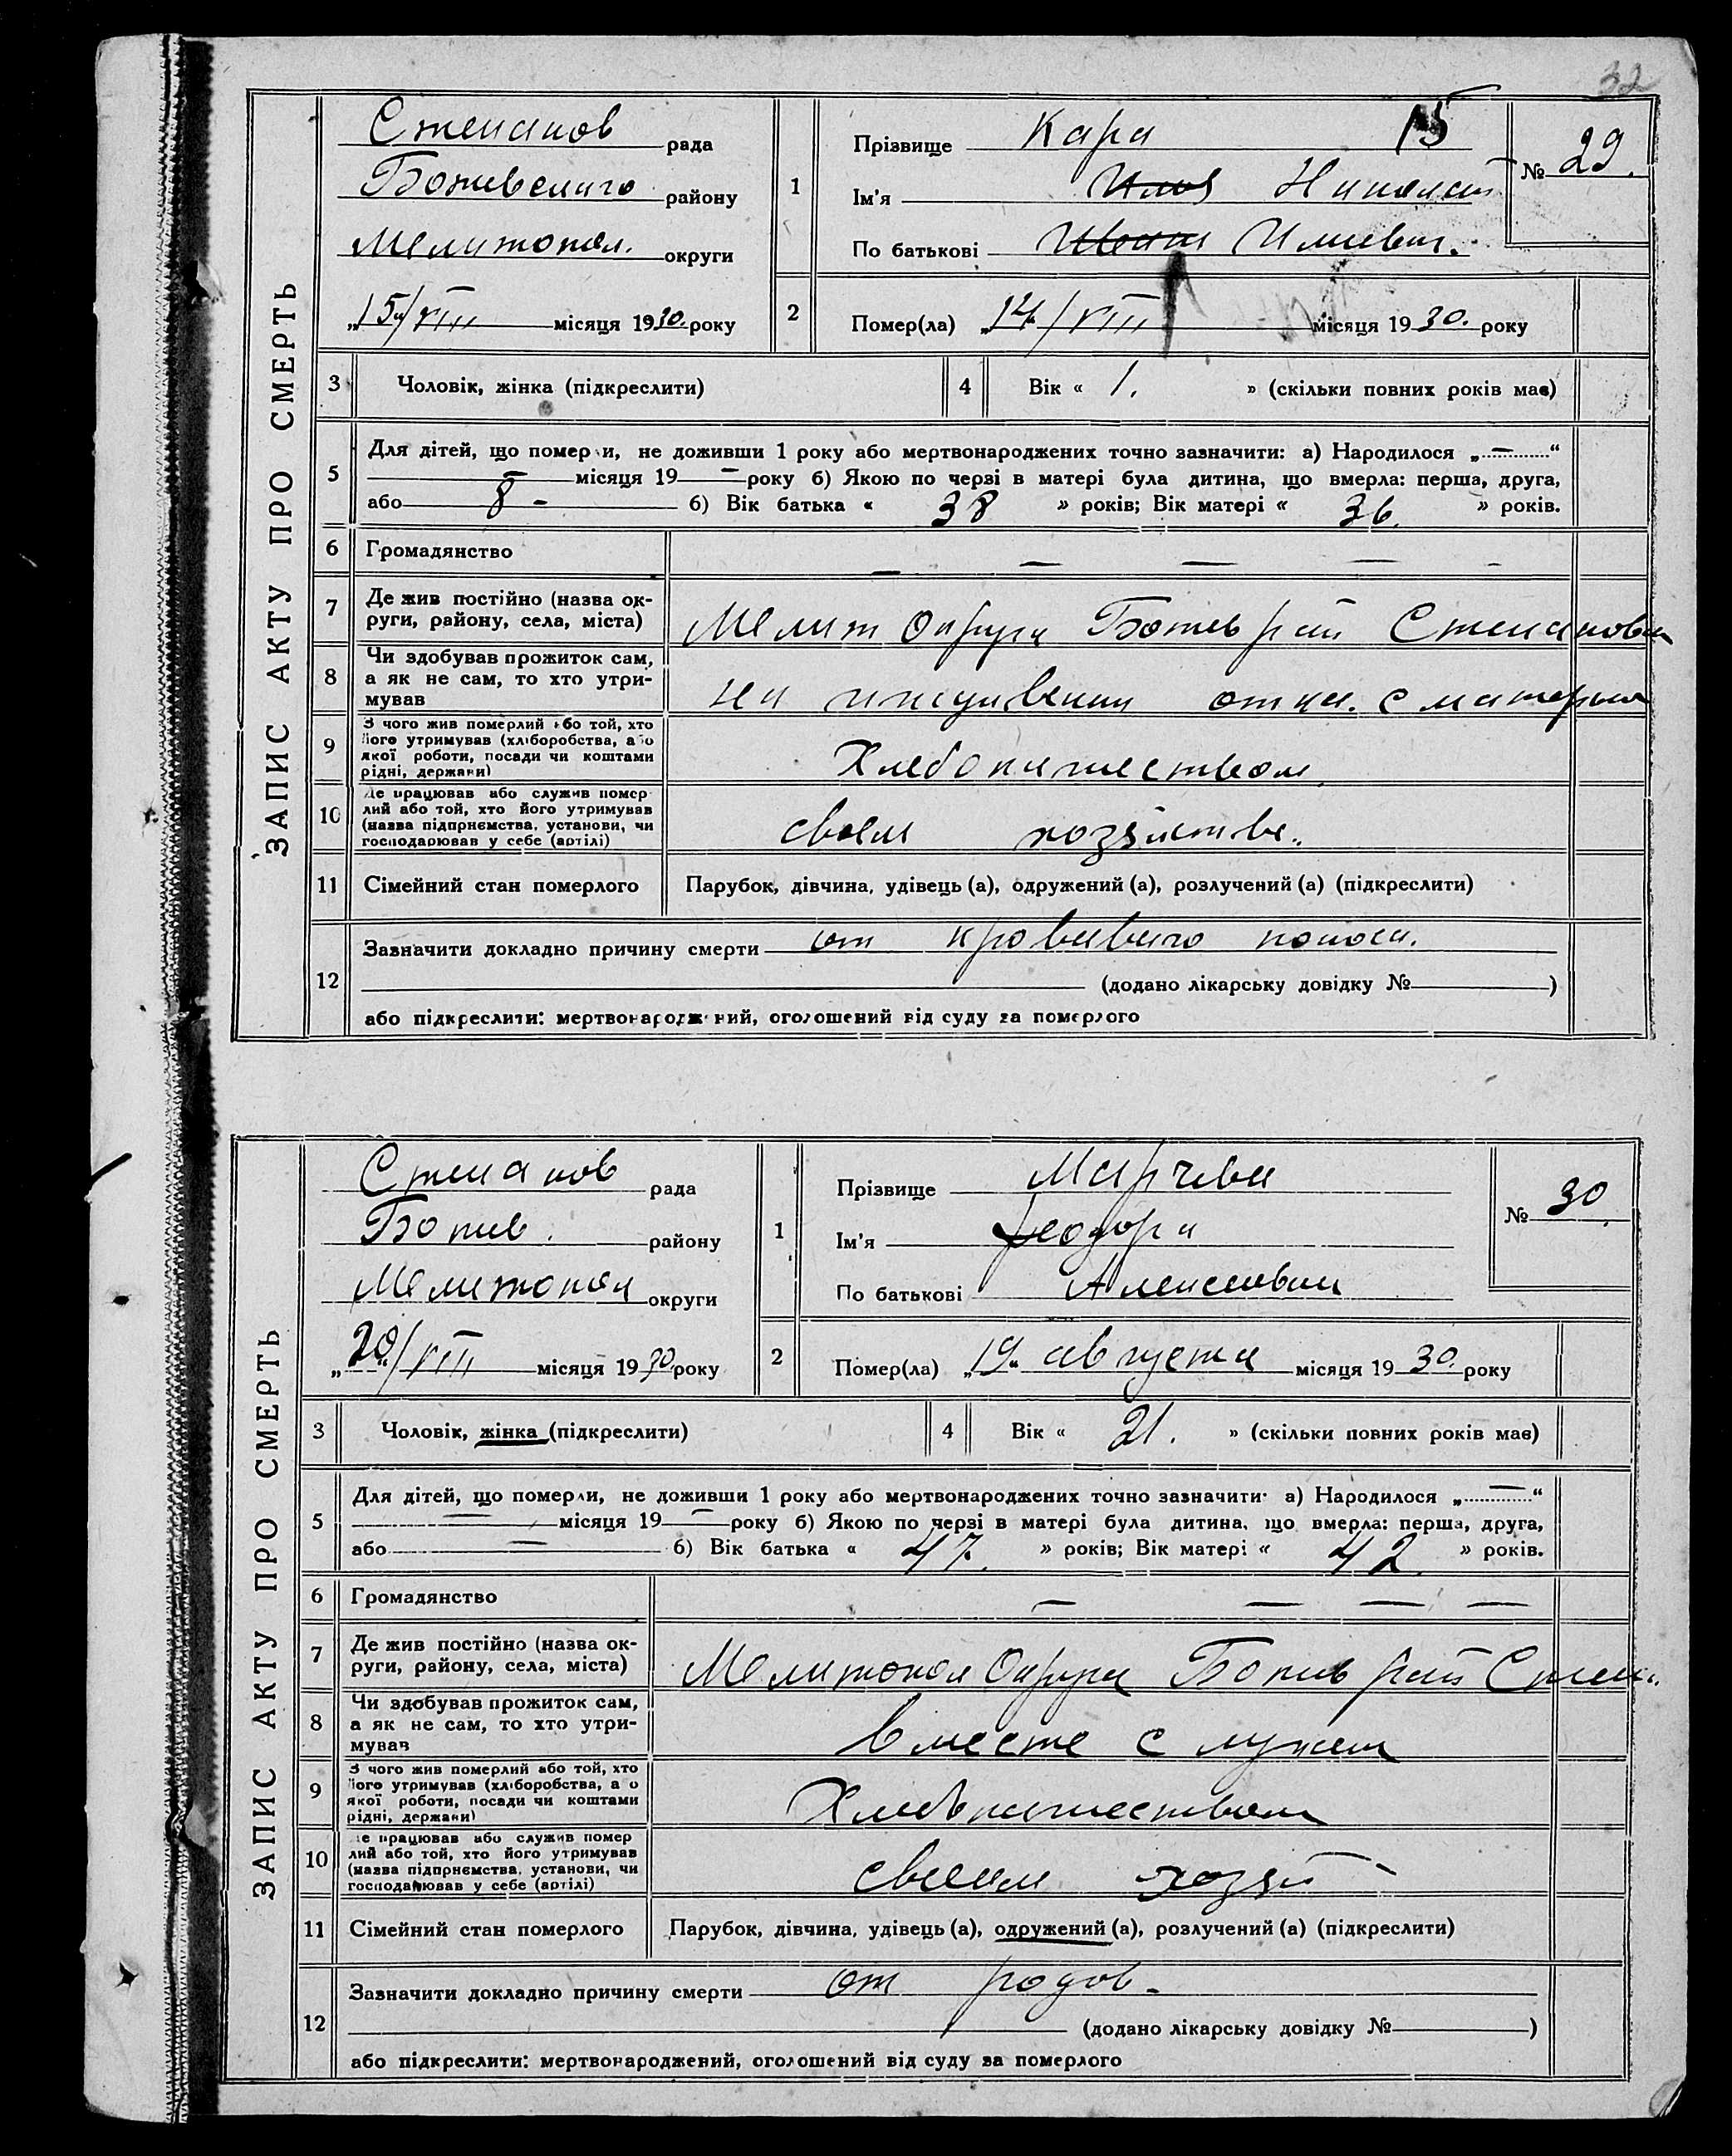 32
ЗАПИС АКТУ ПРО СМЕРТЬ
Степанов рада
района
району
Мелитопол. округи
„15“/VIII місяця 1930. року
1
Прізвище Кара 15
Ім'я Илья Николай
По батькові Ильевич.
№ 29.
2
Помер(ла) „14“/VIII місяця 1930. року
3 Чоловік, жінка (підкреслити)
4 Вік « 1. » (скільки повних років має)
5 Для дітей, що померли, не доживши 1 року або мертвонароджених точно зазначити: а) Народилося „ — “
— місяця 19 — року б) Якою по черзі в матері була дитина, що вмерла: перша, друга,
або 8 - б) Вік батька « 38 » років; Вік матері « 36. » років.
6 Громадянство — — — — -
7 Де жив постійно (назва ок-
руги, району, села, міста)
Мелит Округа Ботев рай Степановка
8 Чи здобував прожиток сам,
а як не сам, то хто утри-
мував
на иждивении отца с матерью
9 З чого жив померлий або той, хто
його утримував (хліборобства, або
якої роботи, посади чи коштами
рідні, держави)
Хлебопашеством
10 Де працював або служив помер
лий або той, хто його утримував
(назва підприємства, установи, чи
господарював у себе (артілі)
своем хозяйстве.
11 Сімейний стан померлого Парубок, дівчина, удівець (а), одружений (а), розлучений (а) (підкреслити)
12 Зазначити докладно причину смерти от кровавого поноса.
(додано лікарську довідку № )
або підкреслити: мертвонароджений, оголошений від суду за померлого
ЗАПИС АКТУ ПРО СМЕРТЬ
Степанов рада
Ботев. району
Мелитопол округи
„20“/VIII місяця 1930 року
1
Прізвище Марчева
Ім'я Феодора
По батькові Алексеевна
№ 30.
2
Помер(ла) „19“ августа місяця 1930. року
3 Чоловік, жінка (підкреслити)
4 Вік « 21. » (скільки повних років має)
5 Для дітей, що померли, не доживши 1 року або мертвонароджених точно зазначити: а) Народилося „ — “
— місяця 19 — року б) Якою по черзі в матері була дитина, що вмерла: перша, друга,
або — б) Вік батька « 47. » років; Вік матері « 42. » років.
6 Громадянство — — — —
7 Де жив постійно (назва ок-
руги, району, села, міста)
Мелитопол Округа Ботев рай Степ.
8 Чи здобував прожиток сам,
а як не сам, то хто утри-
мував
вместе с мужем
9 З чого жив померлий або той, хто
його утримував (хліборобства, або
якої роботи, посади чи коштами
рідні, держави)
Хлебпашеством
10 Де працював або служив помер
лий або той, хто його утримував
(назва підприємства, установи, чи
господарював у себе (артілі)
своем хозяй
11 Сімейний стан померлого Парубок, дівчина, удівець (а), одружений (а), розлучений (а) (підкреслити)
12 Зазначити докладно причину смерти от родов.
(додано лікарську довідку № )
або підкреслити: мертвонароджений, оголошений від суду за померлого